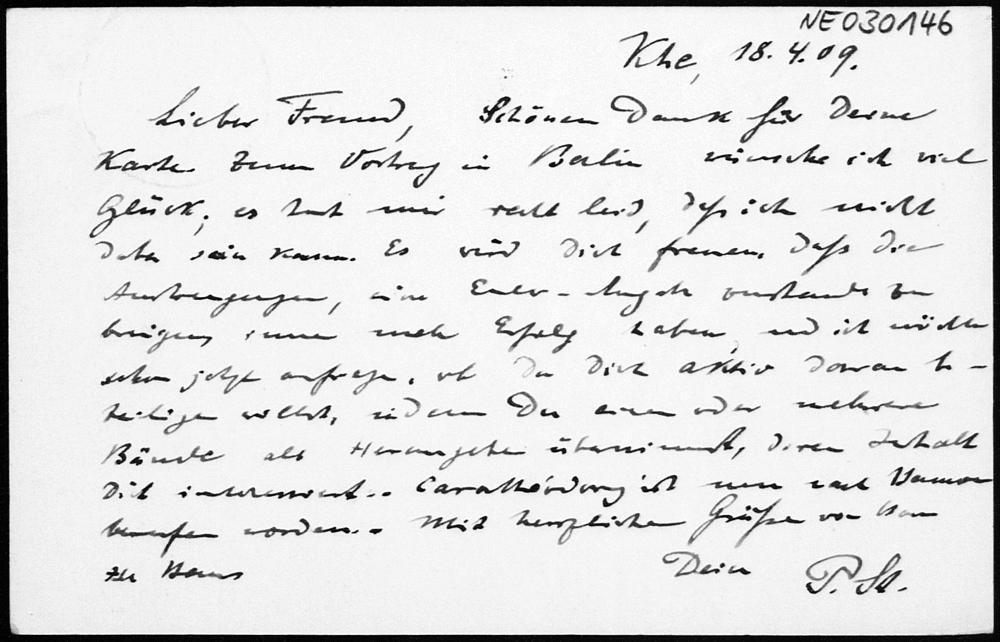 NE030146
Khe, 18.4.09.
Lieber Freund, Schönen Dank für Deine
Karte. Zum Vortrag in Berlin wünsche ich viel
Glück; es tut mir recht leid, daß ich nicht
dabei sein kann. Es wird Dich freuen, daß die
Anstrengungen, eine Euler-Ausgabe zustande zu
bringen immer mehr Erfolg haben, und ich möchte
schon jetzt anfragen, ob Du Dich aktiv daran be-
teiligen willst, indem Du einen oder mehrere
Bände als Herausgeber übernimmst, deren Inhalt
Dich interessiert.. Carathéodory ist nun nach Hannover
berufen worden.. Mit herzlichen Grüßen von Haus
zu Haus
Dein P. St.